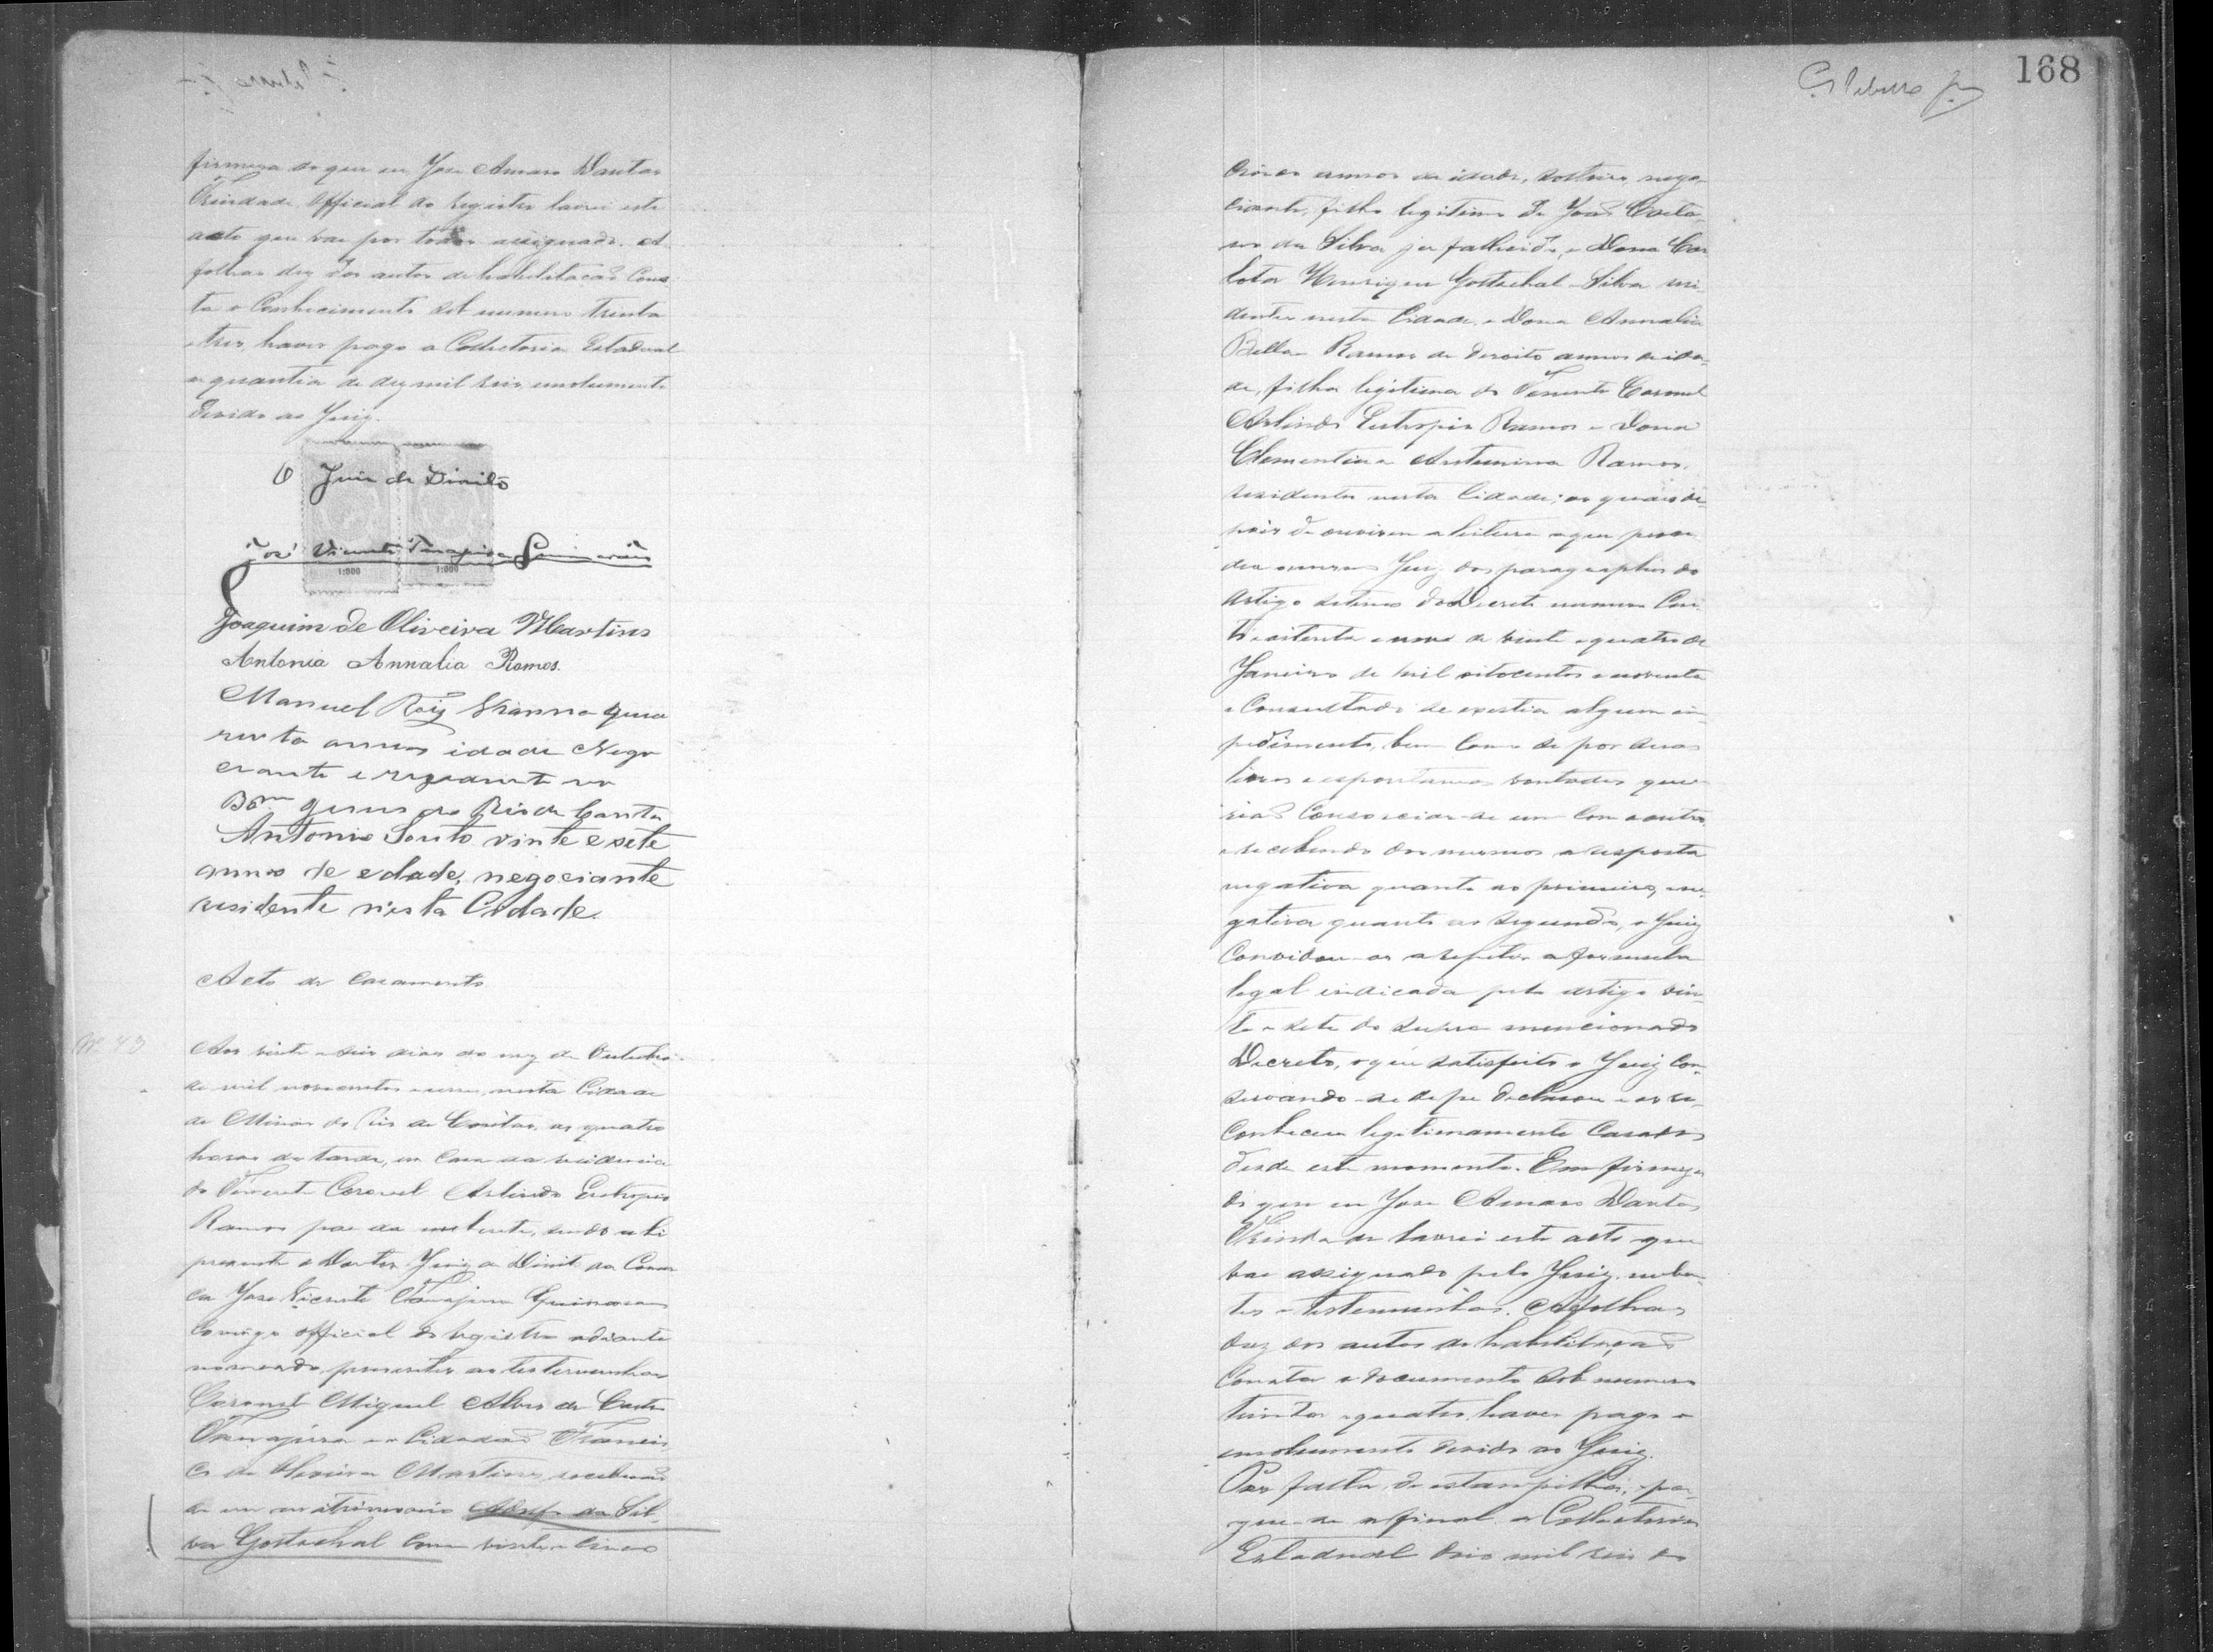 168
firmeza do que eu, Jose Amaro Dantas
Trindade, Official do registro lavrei este
acto que vae por todos assignado. A
folhas dez dos autos de habilitacaõ Cons-
ta o Conhecimento sob numero trinta
e tres, haver pago a Collectoria Estadual
a quantia de dez mil reis, emolumento
devido ao Juiz.
O Juiz de Direito
José Vicente Tanajura Guimarães
1:000 1:000
Joaquim de Oliveira Martins
Antonia Annalia Ramos.
Manuel Roiz Vianna qua
renta annos idade Nego
ciante e rezidente no
Bom Jesus do Rio de Contas
Antonio Souto vinte e sete
annos de edade, negociante
residente n'esta Cidade.
Acto de Casamento
Nº 43
Aos vinte e seis dias do mez de Outubro
de mil novecentos e um, nesta Cidade
de Minas do Rio de Contas, as quatro
horas da tarde, em Casa da residencia
do Tenente Coronel Arlindo Eutropio
Ramos pae da nubente, sendo ahi
presente o Doutor Juiz de Direito da Comar
ca Jose Vicente Tanajura Guimaraes
Comigo official do registro adiante
nomeado, presentes as testemunhas
Coronel Miguel Alves de Castro
Tanajura e o Cidadaõ Francis
co de Oliveira Martins, receberaõ
se em matrimonio da Sil-
va Gottschal Com vinte e cinco
cinco annos de idade, solteiro, nego-
ciante, filho legitimo de Joaõ Caeta-
no da Silva ja fallecido, e Dona Car
lota Henrique Gottschal Silva resi-
dentes nesta Cidade, e Dona Annalia
Bella Ramos de desoito annos de ida-
de, filha legitima do Tenente Coronel
Arlindo Eutropio Ramos e Dona
Clementina Antonina Ramos,
residentes nesta Cidade; os quaes de-
pois de ouvirem a leitura a que proce
deu o mesmo Juiz dos paragraphos do
artigo setimo do Decreto numero Cen-
to e oitenta e um de vinte e quatro de
Janeiro de mil oitocentos e noventa
e Consultado se existia algum im-
pedimento, bem como se por suas
livres e espontaneas vontades que-
riaõ Consorciar-se um Com o outro,
e recebendo dos mesmos a resposta
negativa quanto ao primeiro, e ne-
gativa quanto ao segundo, o Juiz
Convidou-os a repetir a formula
legal indicada pelo artigo vin-
te e sete do supra mencionado
Decreto, o que satisfeito o Juiz Con-
servando-se de pe declarou e os re-
conheceu legitimamente Casados
desde este momento. Em firmeza
do que eu Jose Amaro Dantas
Trindade lavrei este acto que
vae assignado pelo Juiz, nuben-
tes e testemunhas. A folhas
dez dos autos de habilitaçaõ
Consta o documento sob numero
trinta e quatro, haver pago o
emolumento devido ao Juiz.
Por falta de estampilhas, pa-
gou-se afinal a Collectoria
Estadual dois mil reis de